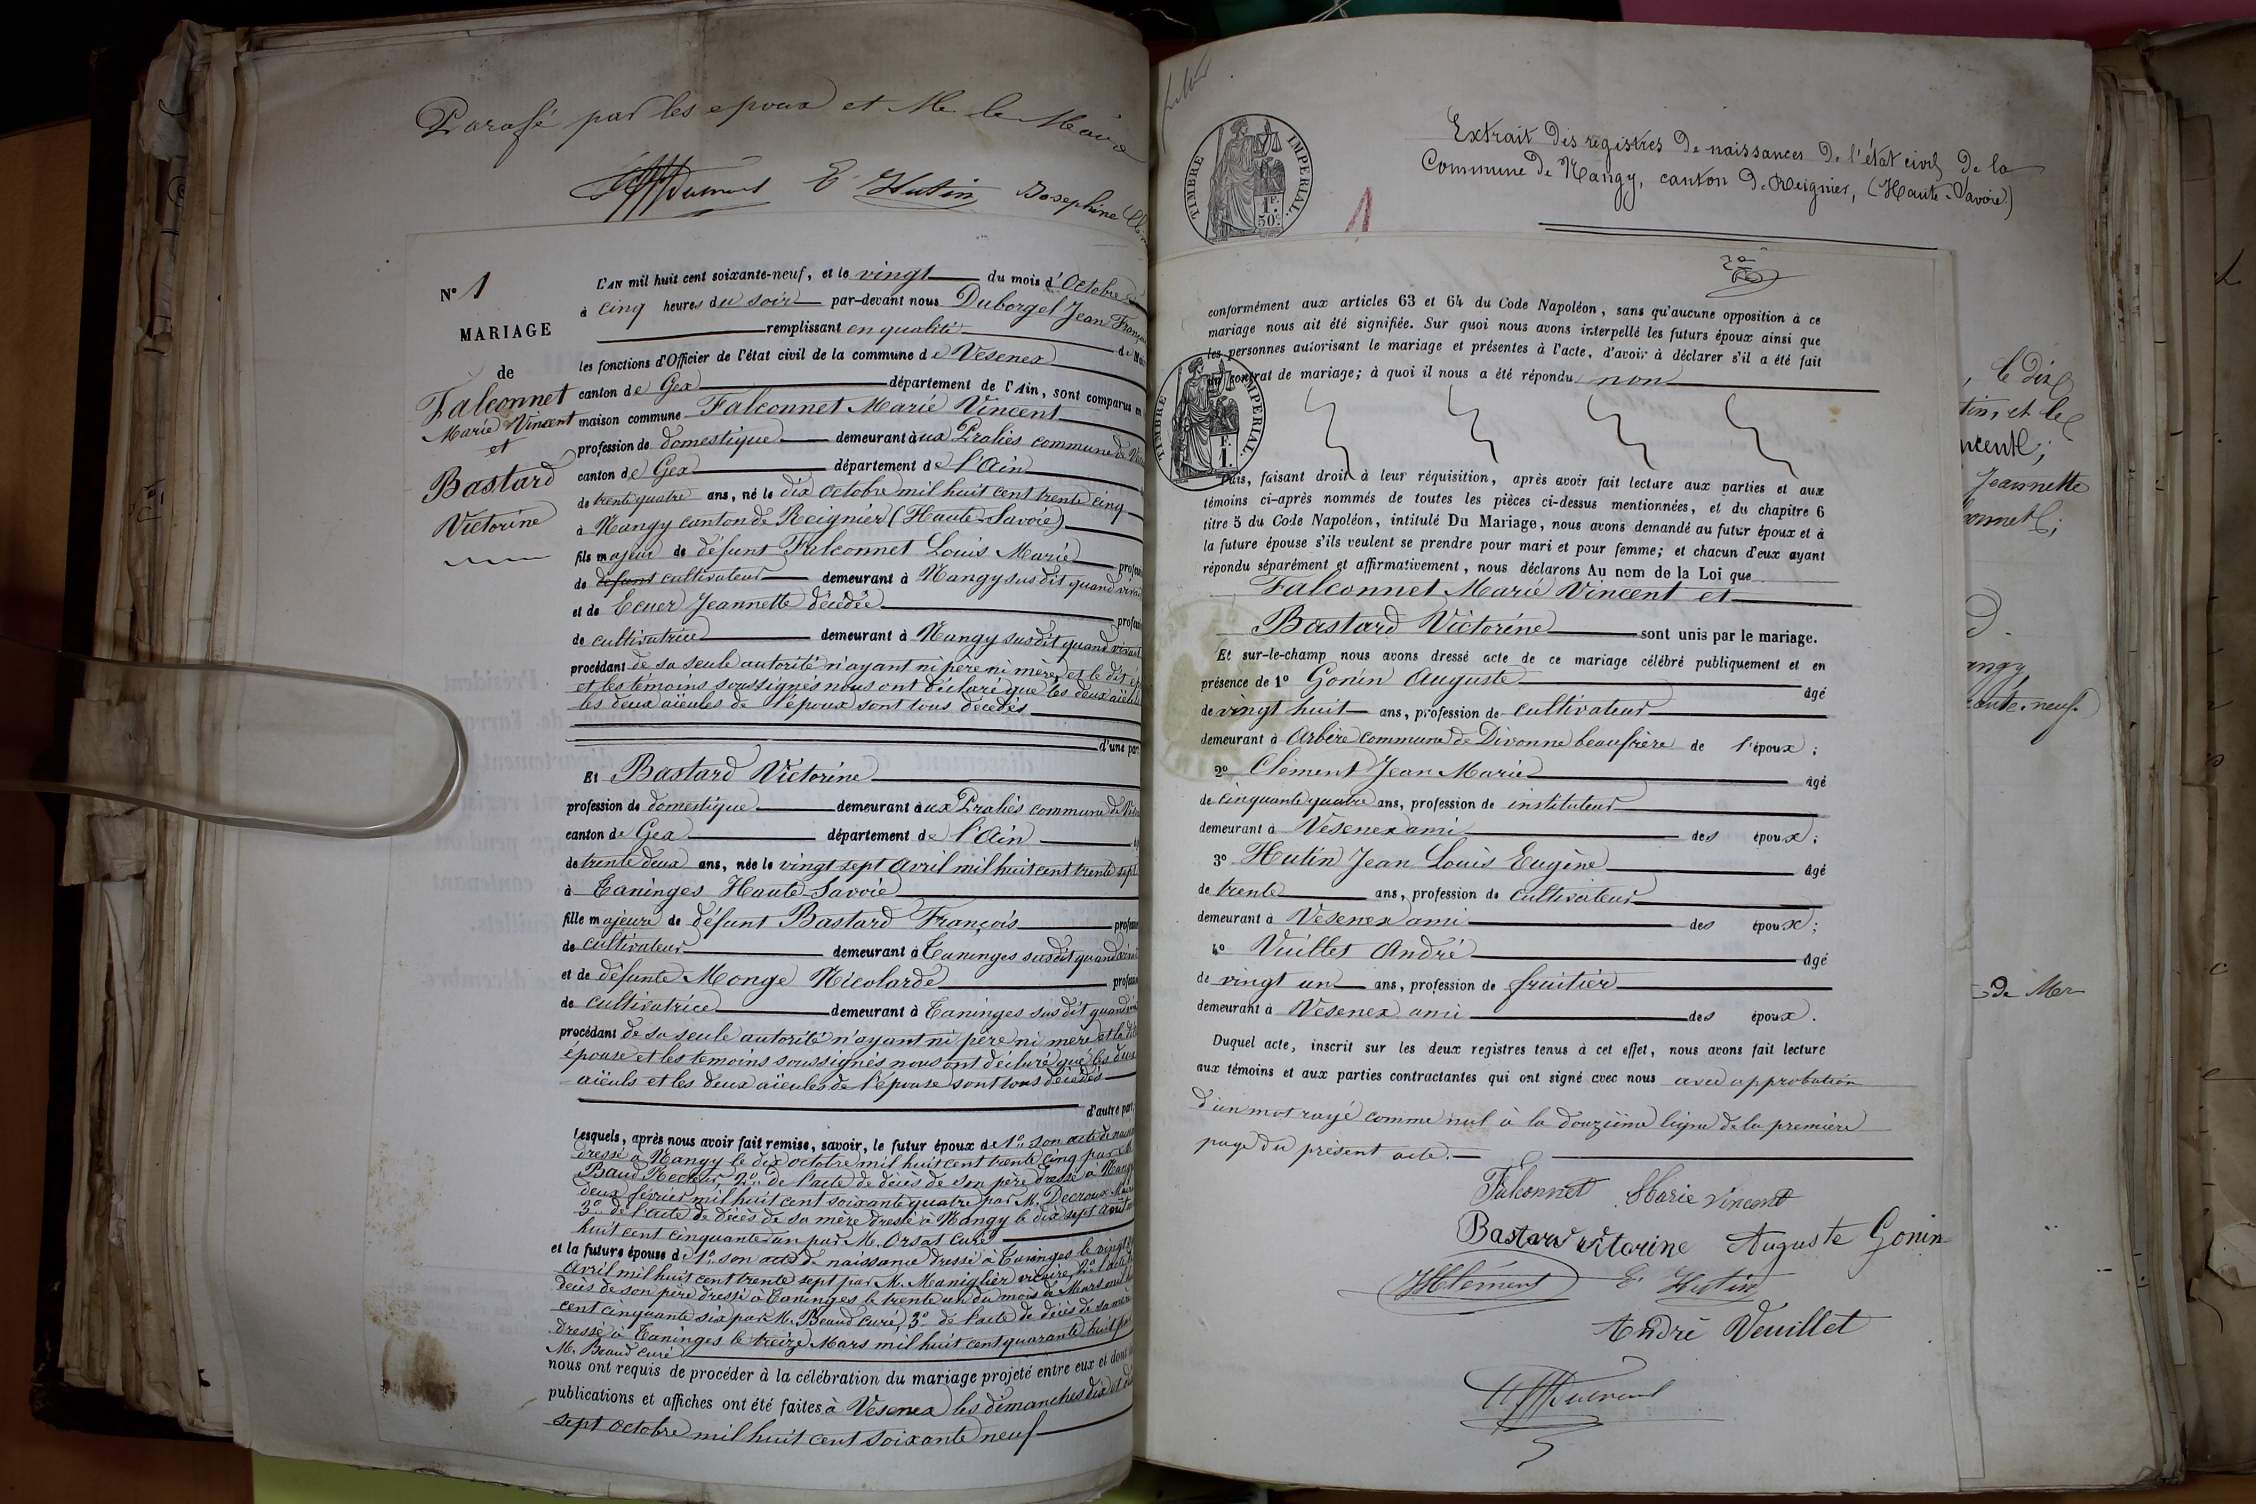 Parafé par les epoux et Mr le Maire
E Hutin Josephine
N° 1
MARIAGE
de
Falconnet
Marie Vincent
et
Bastard
Victorine
L'AN mil huit cent soixante-neuf, et le vingt du mois d'Octobre
à cinq heures du soir par-devant nous Duborgel Jean François
remplissant en qualité de
les fonctions d'Officier de l'état civil de la commune de Vesenex
canton de Gex département de l'Ain, sont comparus en
maison commune Falconnet Marie Vincent
profession de domestique demeurant à aux Pralies commune de
canton de Gex département de l'Ain
de trente quatre ans, né le dix Octobre mil huit cent trente cinq
à Nangy canton de Reignier (Haute-Savoie)
fils majeur de défunt Falconnet Louis Marie
de défunt cultivateur demeurant à Nangy susdit quand vivait
et de Ecuer Jeannette décédée
de cultivatrice demeurant à Nangy susdit quand vivait
procédant de sa seule autorité n'ayant ni père ni mère et le dit
et les témoins soussignés nous ont déclaré que les deux aïeuls
les deux aïeules de l'époux sont tous décédés
d'une part
Et Bastard Victorine
profession de domestique demeurant à aux Pralies commune de
canton de Gex département de l'Ain
de trente deux ans, née le vingt sept Avril mil huit cent trente sept
à Taninges Haute-Savoie
fille majeure de défunt Bastard François
de cultivateur demeurant à Taninges susdit quand
et de défunte Monge Nicolarde
de cultivatrice demeurant à Taninges susdit quand
procédant de sa seule autorité n'ayant ni père ni mère et la dite
épouse et les témoins soussignés nous ont déclaré que les deux
aïeuls et les deux aïeules de l'épouse sont tous décédés
d'autre part
Lesquels, après nous avoir fait remise, savoir, le futur époux de 1° son acte de
dressé à Nangy le dix octobre mil huit cent trente cinq par M.
Baud Recteur, 2° de l'acte de décès de son père dressé à Nangy
deux février mil huit cent soixante quatre par M. Decroux Maire
3° de l'acte de décès de sa mère dressé à Nangy le dix sept Août
huit cent cinquante un par M. Orsat curé
et la future épouse de 1° son acte de naissance dressé à Taninges le vingt
Avril mil huit cent trente sept par M. Maniglier vicaire, 2° l'acte
décès de son père dressé à Taninges le trente un du mois de Mars mil
cent cinquante six par M. Beaud curé, 3° de l'acte de décès de sa mère
dressé à Taninges le treize Mars mil huit cent quarante huit par
M. Beaud curé
nous ont requis de procéder à la célébration du mariage projeté entre eux et dont
publications et affiches ont été faites à Vesenex les dimanches dix et
sept octobre mil huit cent soixante neuf
TIMBRE IMPERIAL.
1F. 50c.
1
Extrait des registres de naissances de l'état civil de la
Commune de Nangy, canton de Reignier, (Haute-Savoie)
conformément aux articles 63 et 64 du Code Napoléon, sans qu'aucune opposition à ce
mariage nous ait été signifiée. Sur quoi nous avons interpellé les futurs époux ainsi que
les personnes autorisant le mariage et présentes à l'acte, d'avoir à déclarer s'il a été fait
un contrat de mariage; à quoi il nous a été répondu non
TIMBRE IMPERIAL.
F. 1.
Puis, faisant droit à leur réquisition, après avoir fait lecture aux parties et aux
témoins ci-après nommés de toutes les pièces ci-dessus mentionnées, et du chapitre 6
titre 5 du Code Napoléon, intitulé Du Mariage, nous avons demandé au futur époux et à
la future épouse s'ils veulent se prendre pour mari et pour femme; et chacun d'eux ayant
répondu séparément et affirmativement, nous déclarons Au nom de la Loi que
Falconnet Marie Vincent et
Bastard Victorine sont unis par le mariage.
Et sur-le-champ nous avons dressé acte de ce mariage célébré publiquement et en
présence de 1° Gonin Auguste âgé
de vingt huit ans, profession de cultivateur
demeurant à Arbère commune de Divonne beaufrère de l'époux;
2° Clément Jean Marie âgé
de cinquante quatre ans, profession de instituteur
demeurant à Vesenex ami des époux;
3° Hutin Jean Louis Eugène âgé
de trente ans, profession de cultivateur
demeurant à Vesenex ami des époux;
4° Vuillet André âgé
de vingt un ans, profession de fruitier
demeurant à Vesenex ami des époux.
Duquel acte, inscrit sur les deux registres tenus à cet effet, nous avons fait lecture
aux témoins et aux parties contractantes qui ont signé avec nous avec approbation
d'un mot rayé comme nul à la douzième ligne de la première
page du présent acte.
Falconnet Marie vincent
Bastard vitorine Auguste Gonin
JClément E Hutin
André Veuillet
le dix
et le
Jeannette
de Mer